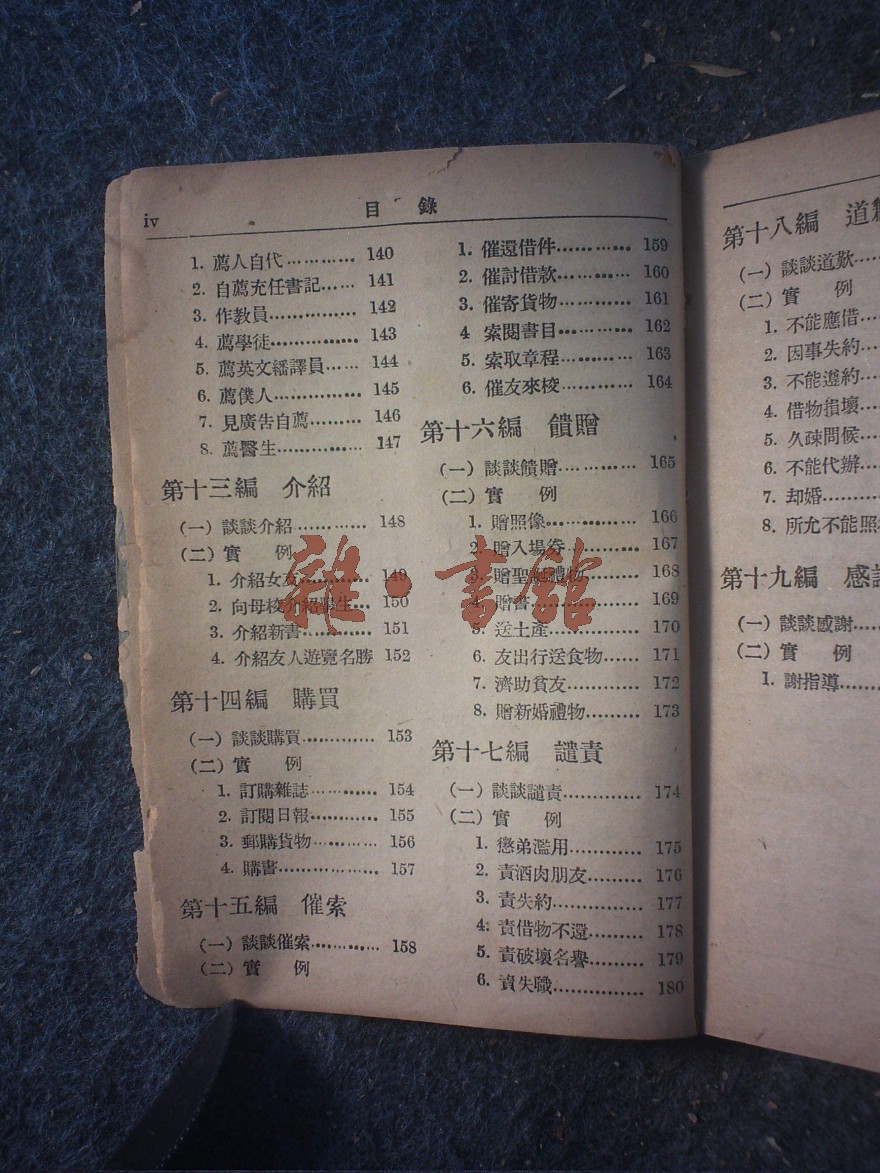 iv 目錄
1. 薦人自代………… 140
2. 自薦充任書記…… 141
3. 作教員…………… 142
4. 薦學徒…………… 143
5. 薦英文繙譯員…… 144
6. 薦僕人…………… 145
7. 見廣告自薦……… 146
8. 薦醫生…………… 147
第十三編 介紹
(一) 談談介紹………… 148
(二) 實 例
1. 介紹女友………… 149
2. 向母校介紹學生… 150
3. 介紹新書………… 151
4. 介紹友人遊覽名勝 152
第十四編 購買
(一) 談談購買………… 153
(二) 實 例
1. 訂購雜誌………… 154
2. 訂閱日報………… 155
3. 郵購貨物………… 156
4. 購書……………… 157
第十五編 催索
(一) 談談催索………… 158
(二) 實 例
1. 催還借件………… 159
2. 催討借款………… 160
3. 催寄貨物………… 161
4 索閱書目………… 162
5. 索取章程………… 163
6. 催友來校………… 164
第十六編 饋贈
(一) 談談饋贈………… 165
(二) 實 例
1. 贈照像…………… 166
2. 贈入場券………… 167
3. 贈聖誕禮物……… 168
4. 贈書……………… 169
5. 送土產…………… 170
6. 友出行送食物…… 171
7. 濟助貧友………… 172
8. 贈新婚禮物……… 173
第十七編 譴責
(一) 談談譴責………… 174
(二) 實 例
1. 懲弟濫用………… 175
2. 責酒肉朋友……… 176
3. 責失約…………… 177
4: 責借物不還……… 178
5. 責破壞名譽……… 179
6. 責失職…………… 180
雜·書館
第十八編 道
(一) 談談道歉……
(二) 實 例
1. 不能應借……
2. 因事失約……
3. 不能遵約……
4. 借物損壞……
5. 久疎問候……
6. 不能代辦……
7. 却婚…………
8. 所允不能照
第十九編 感
(一) 談談感謝……
(二) 實 例
1. 謝指導………